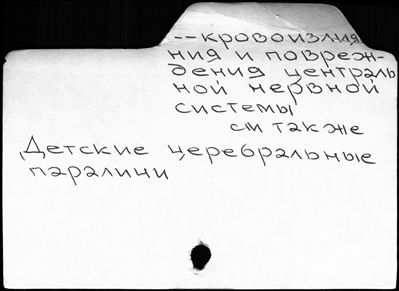 --кровоизлия
ния и повреж-
дения централь
ной нервной
системы
см также
Детские церебральные
параличи